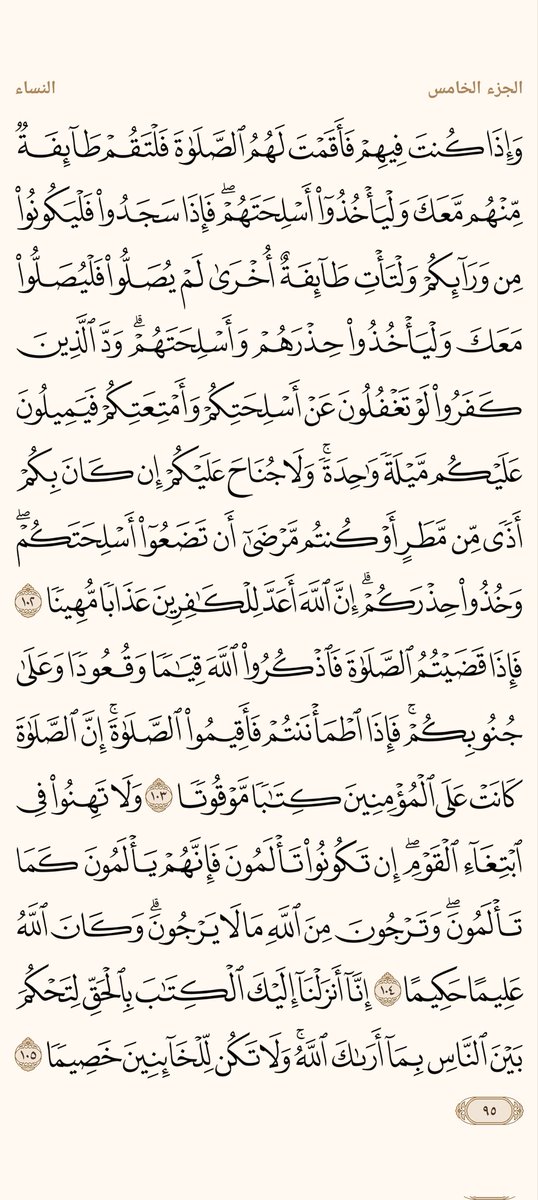 الجزء الخامس النساء
وَإِذَا كُنتَ فِيهِمْ فَأَقَمْتَ لَهُمُ ٱلصَّلَوٰةَ فَلْتَقُمْ طَآئِفَةٌ
مِّنْهُم مَّعَكَ وَلْيَأْخُذُوٓا۟ أَسْلِحَتَهُمْۖ فَإِذَا سَجَدُوا۟ فَلْيَكُونُوا۟
مِن وَرَآئِكُمْ وَلْتَأْتِ طَآئِفَةٌ أُخْرَىٰ لَمْ يُصَلُّوا۟ فَلْيُصَلُّوا۟
مَعَكَ وَلْيَأْخُذُوا۟ حِذْرَهُمْ وَأَسْلِحَتَهُمْۗ وَدَّ ٱلَّذِينَ
كَفَرُوا۟ لَوْ تَغْفُلُونَ عَنْ أَسْلِحَتِكُمْ وَأَمْتِعَتِكُمْ فَيَمِيلُونَ
عَلَيْكُم مَّيْلَةً وَٰحِدَةًۚ وَلَا جُنَاحَ عَلَيْكُمْ إِن كَانَ بِكُمْ
أَذًى مِّن مَّطَرٍ أَوْ كُنتُم مَّرْضَىٰٓ أَن تَضَعُوٓا۟ أَسْلِحَتَكُمْۖ
وَخُذُوا۟ حِذْرَكُمْۗ إِنَّ ٱللَّهَ أَعَدَّ لِلْكَـٰفِرِينَ عَذَابًا مُّهِينًا ١٠٢
فَإِذَا قَضَيْتُمُ ٱلصَّلَوٰةَ فَٱذْكُرُوا۟ ٱللَّهَ قِيَـٰمًا وَقُعُودًا وَعَلَىٰ
جُنُوبِكُمْۚ فَإِذَا ٱطْمَأْنَنتُمْ فَأَقِيمُوا۟ ٱلصَّلَوٰةَۚ إِنَّ ٱلصَّلَوٰةَ
كَانَتْ عَلَى ٱلْمُؤْمِنِينَ كِتَـٰبًا مَّوْقُوتًا ١٠٣ وَلَا تَهِنُوا۟ فِى
ٱبْتِغَآءِ ٱلْقَوْمِۖ إِن تَكُونُوا۟ تَأْلَمُونَ فَإِنَّهُمْ يَأْلَمُونَ كَمَا
تَأْلَمُونَۖ وَتَرْجُونَ مِنَ ٱللَّهِ مَا لَا يَرْجُونَۗ وَكَانَ ٱللَّهُ
عَلِيمًا حَكِيمًا ١٠٤ إِنَّآ أَنزَلْنَآ إِلَيْكَ ٱلْكِتَـٰبَ بِٱلْحَقِّ لِتَحْكُمَ
بَيْنَ ٱلنَّاسِ بِمَآ أَرَىٰكَ ٱللَّهُۚ وَلَا تَكُن لِّلْخَآئِنِينَ خَصِيمًا ١٠٥
٩٥